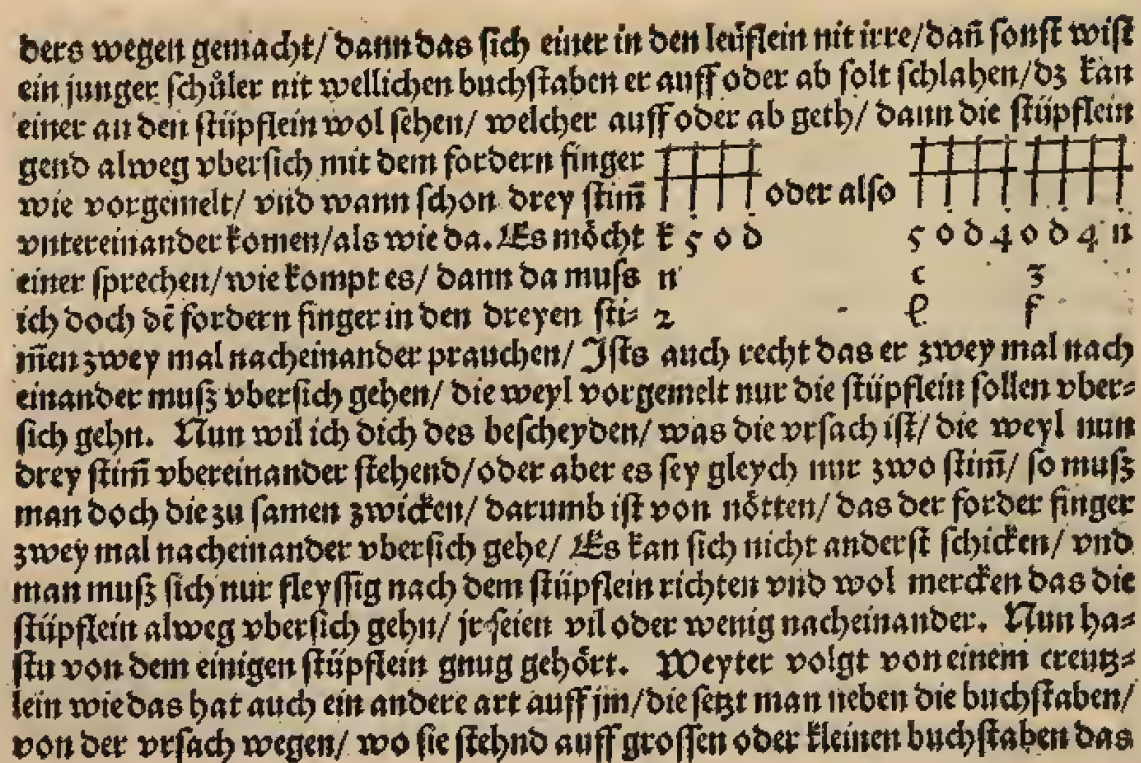 ders wegen gemacht/ dann das ſich einer in den leüflein nit irre/ dañ ſonſt wiſt
ein junger ſchůler nit wellichen buchſtaben er auff oder ab ſolt ſchlahen/ dz kan
einer an den ſtüpflein wol ſehen/ welcher auff oder ab geth/ dann die ſtüpflein
gend alweg vberſich mit dem fordern finger
wie vorgemelt/ vnd wann ſchon drey ſtim̃ oder alſo
vntereinander komen/ als wie da. Es möcht k 5 o d 5 o d 4 o d 4 n
einer ſprechen/ wie kompt es/ dann da muſs n c 3
ich doch dē fordern finger in den dreyen ſti⸗ 2 ł f
m̃en zwey mal nacheinander prauchen/ Iſts auch recht das er zwey mal nach
einander muſʒ vberſich gehen/ die weyl vorgemelt nur die ſtüpflein ſollen vber⸗
ſich gehn. Nun wil ich dich des beſcheyden/ was die vrſach iſt/ die weyl nun
drey ſtim̃ vbereinander ſtehend/ oder aber es ſey gleych nur zwo ſtim̃/ ſo muſʒ
man doch die zu ſamen zwicken/ darumb iſt von nötten/ das der forder finger
zwey mal nacheinander vberſich gehe/ Es kan ſich nicht anderſt ſchicken/ vnd
man muſʒ ſich nur fleyſſig nach dem ſtüpflein richten vnd wol mercken das die
ſtüpflein alweg vberſich gehn/ jr ſeien vil oder wenig nacheinander. Nun ha⸗
ſtu von dem einigen ſtüpflein gnug gehört. Weyter volgt von einem creutz⸗
lein wie das hat auch ein andere art auff jm/ die ſetzt man neben die buchſtaben/
von der vrſach wegen/ wo ſie ſtehnd auff groſſen oder kleinen buchſtaben das